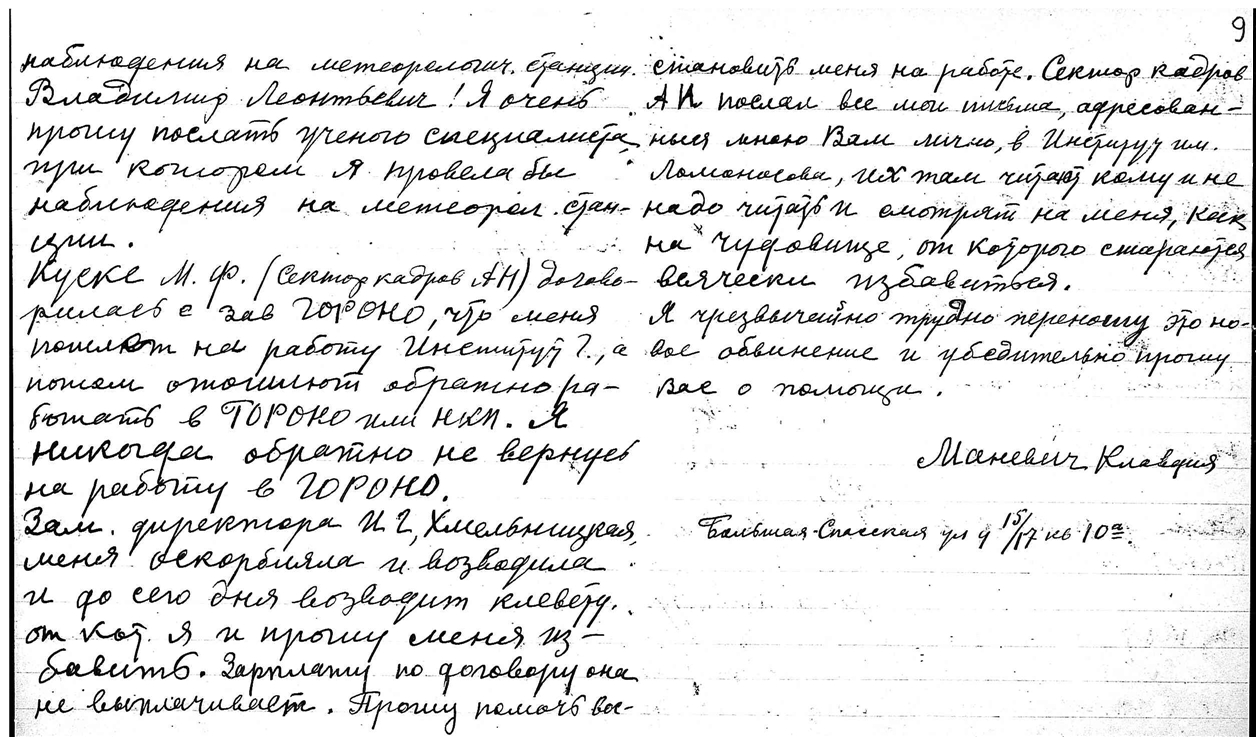 9
наблюдения на метеорологич. станции.
Владимир Леонтьевич! Я очень
прошу послать ученого специалиста,
при котором я провела бы
наблюдения на метеорол. стан-
ции.
Куске М. Ф. (Сектор кадров АН) догово-
рилась с зав ГОРОНО, что меня
пошлют на работу Институт Г., а
потом отошлют обратно ра-
ботать в ГОРОНО или НКП. Я
никогда обратно не вернусь
на работу в ГОРОНО.
Зам. директора ИГ, Хмельницкая,
меня оскорбляла и возводила
и до сего дня возводит клевету.
от кот. я и прошу меня из-
бавить. Зарплату по договору она
не выплачивает. Прошу помочь вос-
становить меня на работе. Сектор кадров
АН послал все мои письма, адресован-
ные мною Вам лично, в Институт им.
Ломоносова, их там читают кому и не
надо читать и смотрят на меня, как
на чудовище, от которого стараются
всячески избавиться.
Я чрезвычайно трудно переношу это но-
вое обвинение и убедительно прошу
Вас о помощи.
Маневич Клавдия
Большая-Спасская ул д 15/17 кв 10а.